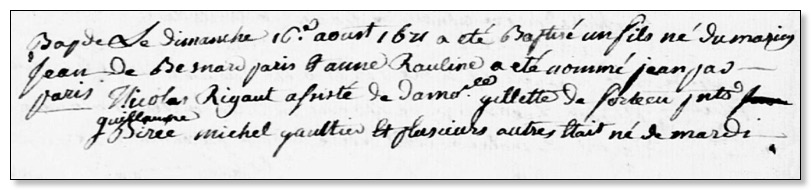 Bap de Le dimanche 16e aoust 1621 a eté Baptisé un fils né du mariage
Jean de Besnard paris et anne Rauline a eté nommé jean par
paris. Nicolas Rigaut assisté de damoelle gillette de
guillaume
Birée michel gaultier et plusieurs autres Etait né de mardi